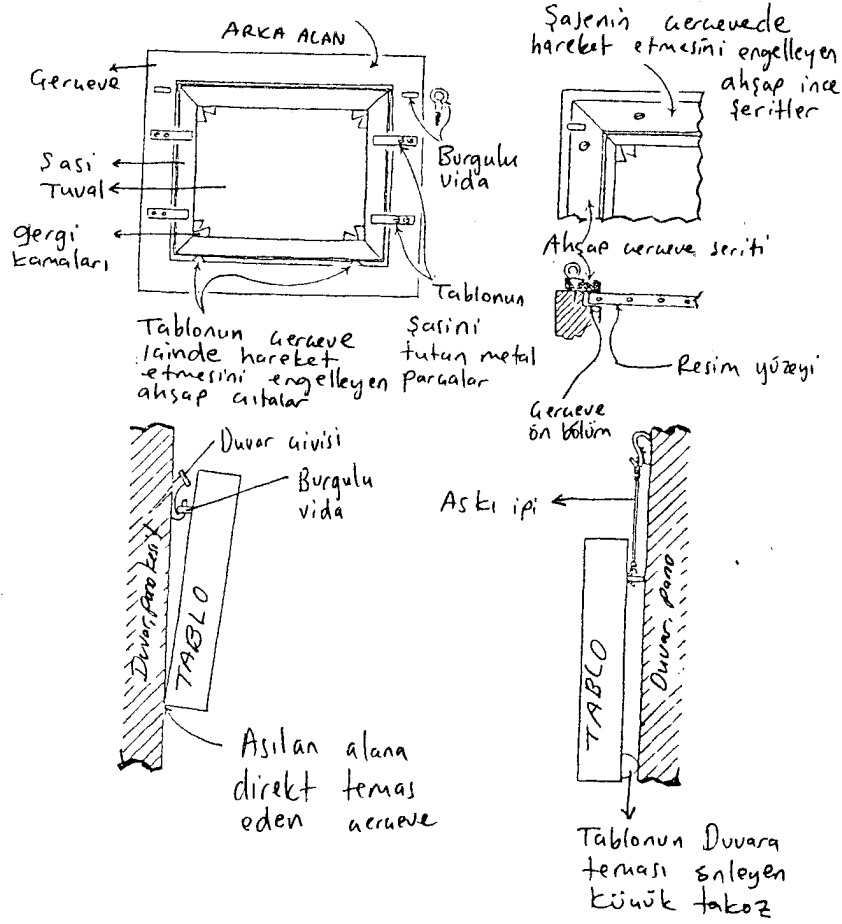 ARKA ALAN
Çerçeve
Şasi
Tuval
gergi
kamaları
Burgulu
vida
Tablonun
şasini
tutan metal
parçalar
Tablonun çerçeve
içinde hareket
etmesini engelleyen
ahşap çıtalar
Şasenin çerçevede
hareket etmesini engelleyen
ahşap ince
şeritler
Ahşap çerçeve şeriti
Resim yüzeyi
Çerçeve
ön bölüm
Duvar çivisi
Burgulu
vida
Duvar, pano kesit
TABLO
Asılan alana
direkt temas
eden çerçeve
Askı ipi
TABLO
Duvar, pano
Tablonun Duvara
teması önleyen
küçük takoz